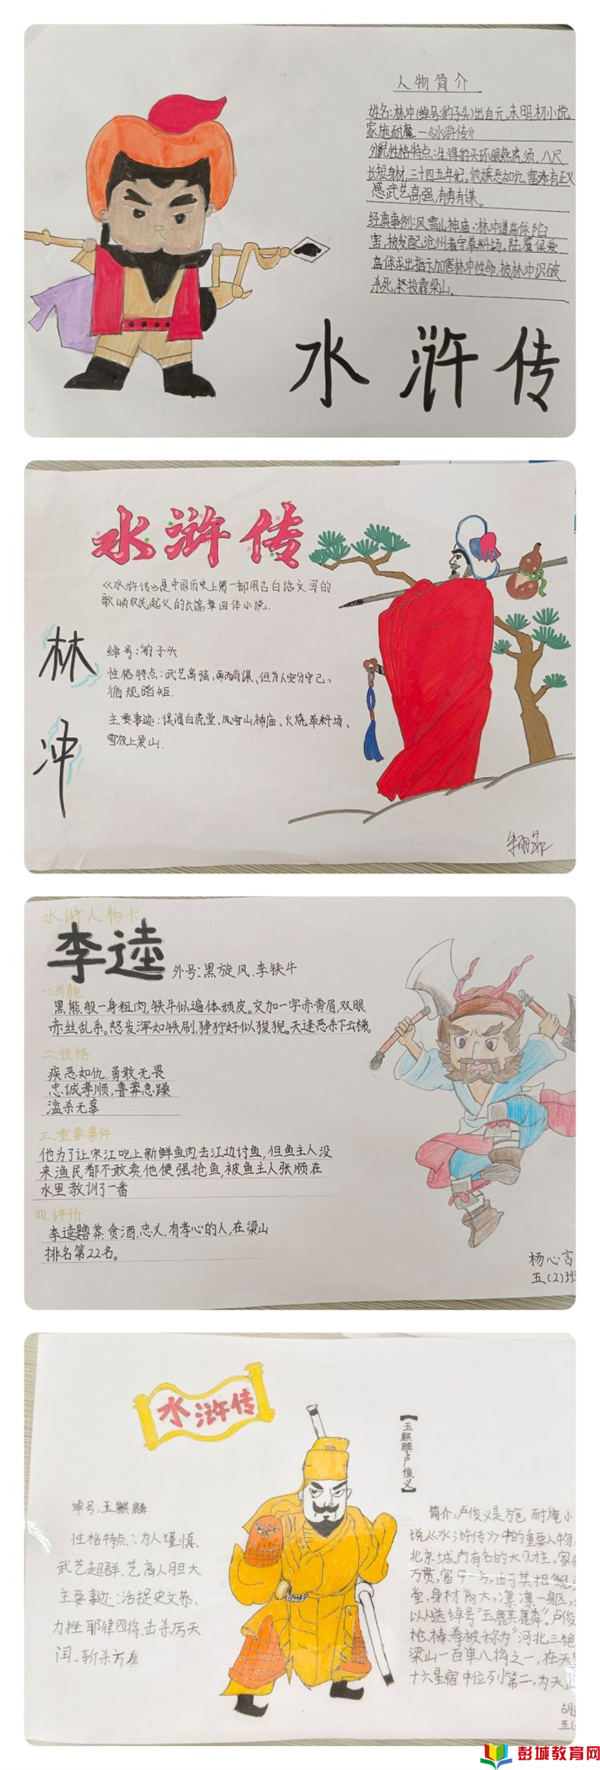 人物简介
姓名:林冲(绰号:豹子头)出自元末明初小说
家施耐庵—《水浒传》
外貌性格特点:生得豹头环眼燕颔虎须,八尺
长短身材,三十四五年纪。他嫉恶如仇,富有正义
感武艺高强,有勇有谋。
经典事例:风雪山神庙:林冲遭高俅陷
害,被发配沧州看守草料场,陆虞候受
高俅
林冲性命,被林冲识破
杀死,终投靠梁山。
水浒传
水浒传
《水浒传》是中国历史上第一部用古白话文写的
歌颂农民起义的长篇章回体小说.
林冲
绰号:豹子头
性格特点:武艺高强、有勇有谋、但为人安分守己、
循规蹈矩.
主要事迹:误闯白虎堂、风雪山神庙、火烧草料场、
雪夜上梁山.
水浒人物卡
李逵
外号:黑旋风.李铁牛
一.外貌
黑熊般一身粗肉,铁牛似遍体顽皮。交加一字赤黄眉,双眼
赤丝乱系。怒发浑如铁刷,狰狞好似狻猊。天蓬恶杀下云梯
二.性格
疾恶如仇,勇敢无畏
忠诚孝顺,鲁莽急躁
滥杀无辜
三.重要事件
他为了让宋江吃上新鲜鱼肉去江边讨鱼,但鱼主人没
来渔民都不敢卖他便强抢鱼,被鱼主人张顺在
水里教训了一番
四.评价
李逵嗜茶,食酒,忠义,有孝心的人,在梁山
排名第22名。
杨心言
五(2)班
水浒传
【玉麒麟卢俊义】
绰号:玉麒麟
性格特点:为人谨慎、
武艺超群、艺高人胆大
主要事迹:活捉史文恭、
力挫耶律四将、击杀厉天
闰、斩杀方
简介:卢俊义是施耐庵小
说《水浒传》中的重要人物
北京城内有名的大财主。家
万贯,富甲一方,由于其相貌
堂,身材高大,凛凛一躯,
以人送绰号"玉麒麟"卢俊
枪、棒、拳被称为"河北三绝
梁山一百单八将之一,在天罡
十六星宿中位列第二,为天
胡
五(
彭城教育网